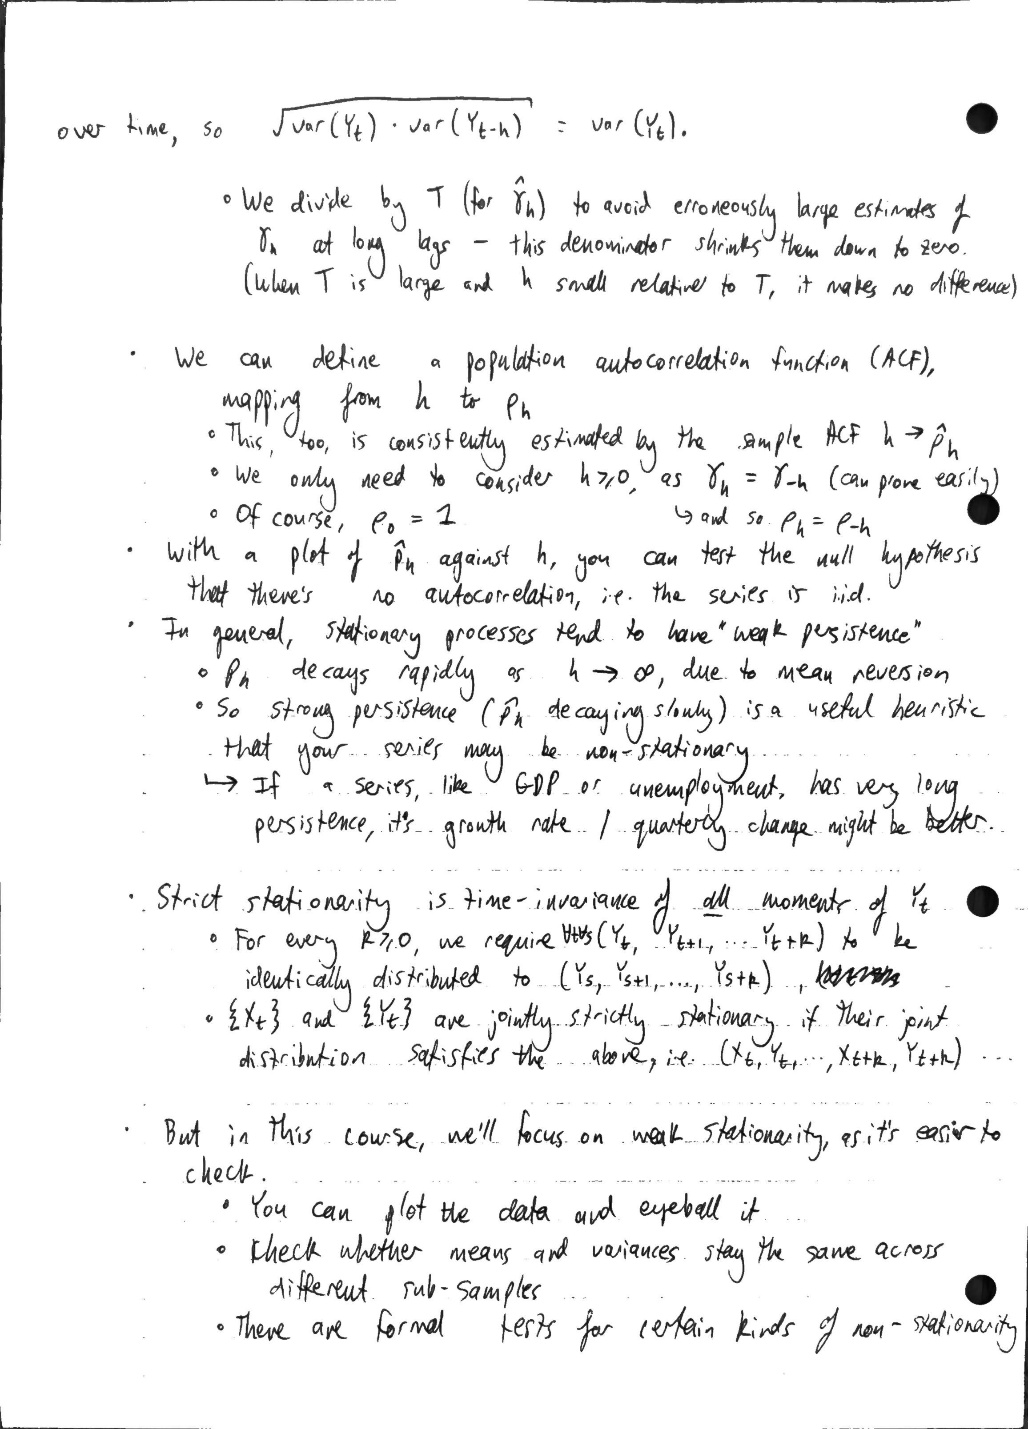 over time, so √(var(Yₜ) · var(Yₜ₋ₕ)) = var(Yₜ).
◦ We divide by T (for γ̂ₕ) to avoid erroneously large estimates of
γₕ at long lags – this denominator shrinks them down to zero.
(When T is large and h small relative to T, it makes no difference)
· We can define a population autocorrelation function (ACF),
mapping from h to ρₕ
◦ This, too, is consistently estimated by the sample ACF h → ρ̂ₕ
◦ We only need to consider h ⩾ 0, as γₕ = γ₋ₕ (can prove easily)
◦ Of course, ρ₀ = 1 ↳ and so ρₕ = ρ₋ₕ
· With a plot of ρ̂ₕ against h, you can test the null hypothesis
that there's no autocorrelation, i.e. the series is i.i.d.
· In general, stationary processes tend to have "weak persistence"
◦ ρₕ decays rapidly as h → ∞, due to mean reversion
◦ So strong persistence (ρ̂ₕ decaying slowly) is a useful heuristic
that your series may be non-stationary
↳ If a series, like GDP or unemployment, has very long
persistence, it's growth rate / quarterly change might be better.
· Strict stationarity is time-invariance of all moments of Yₜ
◦ For every k ⩾ 0, we require ∀t∀s (Yₜ, Yₜ₊₁, ... Yₜ₊ₖ) to be
identically distributed to (Yₛ, Yₛ₊₁, ..., Yₛ₊ₖ),
◦ {Xₜ} and {Yₜ} are jointly strictly stationary if their joint
distribution satisfies the above, i.e. (Xₜ, Yₜ, ..., Xₜ₊ₖ, Yₜ₊ₖ) ...
· But in this course, we'll focus on weak stationarity, as it's easier to
check.
◦ You can plot the data and eyeball it
◦ Check whether means and variances stay the same across
different sub-samples
◦ There are formal tests for certain kinds of non-stationarity